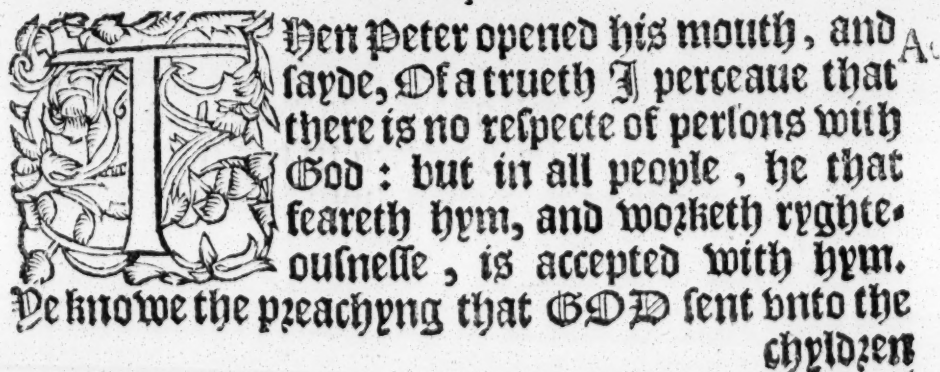 THen Peter opened his mouth, and
sayde, Of a trueth I perceaue that
there is no respecte of persons with
God : but in all people , he that
feareth hym, and worketh ryghte-
ousnesse , is accepted with hym.
Ye knowe the preachyng that GOD sent vnto the
chyldren